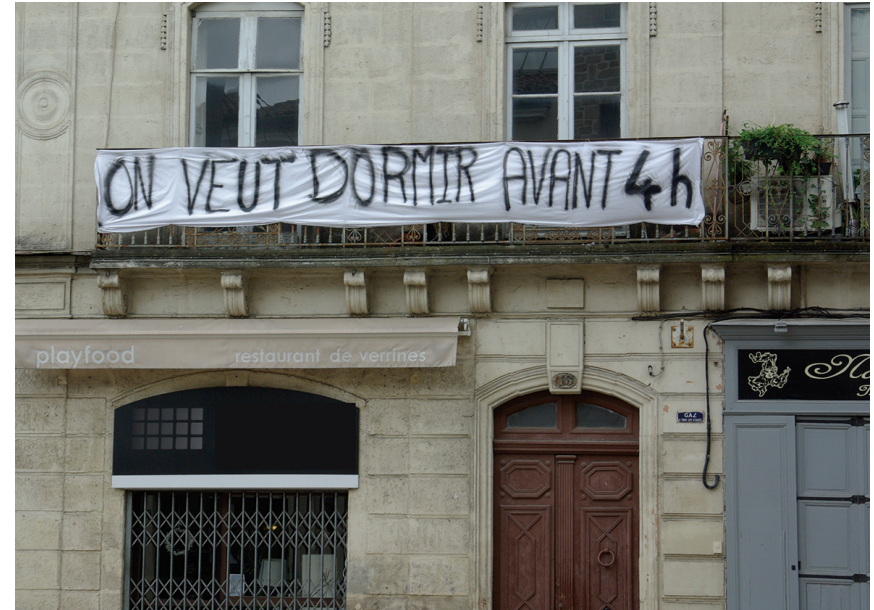 ON VEUT DORMIR AVANT 4h
playfood restaurant de verrines
GAZ